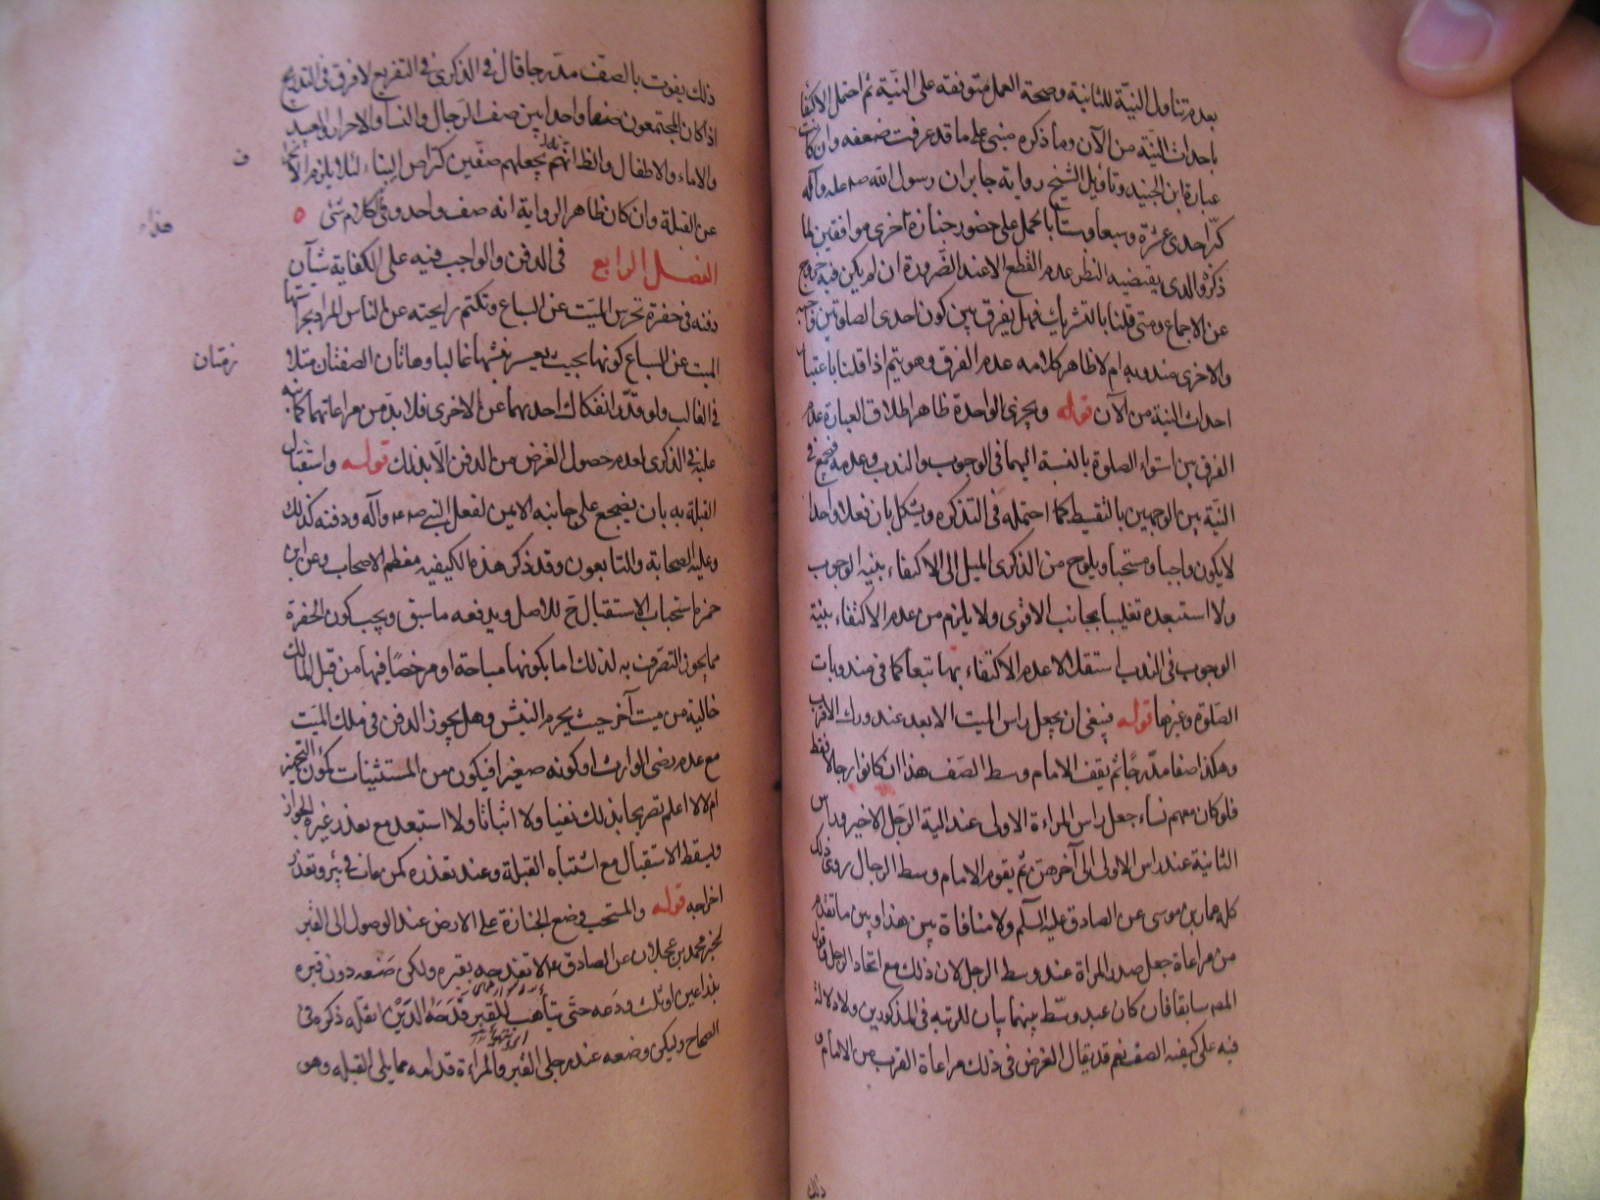 بعدم تناول النيّة للثانية وصحة العمل متوقفة على النيّة ثم احتمل الاكتفا
باحداث النيّة من الآن وما ذكره مبني على ما قد عرفت ضعفه وان كانت
عبارة ابن الجنيد وتاويل الشيخ رواية جابر ان رسول الله صه عله وآله
كبّر احدى عشرة وسبعا وستّا بالحمل على حضور جنازة اخرى موافقين لما
ذكره والذى يقتضيه النظر عدم القطع الا عند الضرورة ان لم يكن فيه خروج
عن الاجماع ومتى قلنا بالتشريك فهل يفرق بين كون احدى الصلوتين واجبة
والاخرى مندوبة ام لا ظاهر كلامه عدم الفرق وهو يتم اذا قلنا باعتبار
احداث النية من الآن قوله ويجزى الواحدة ظاهر اطلاق العبارة عدم
الفرق بين استواء الصلوة بالنسبة اليهما فى الوجوب والندب وعدمه فيجمع فى
النيّة بين الوجهين بالتقسيط كما احتمله فى التذكره ويشكل بان فعلا واحدا
لا يكون واجبا ومستحبا ويلوح من الذكرى الميل الى الاكتفاء بنيّة الوجوب
ولا استبعده تغليبا بجانب الاقوى ولا يلزم من عدم الاكتفاء بنيّة
الوجوب فى الندب استقلالا عدم الاكتفاء بها تبعا كما فى مندوبات
الصلوة وغيرها قوله فينبغى ان يجعل راس الميت الابعد عند ورك الاقرب
وهكذا صفا مدّرجا ثم يقف الامام وسط الصف هذا ان كانوا رجالا فقط
فلو كان معهم نساء جعل راس المراءة الاولى عند الية الرجل الاخير وراس
الثانية عند راس الاولى الى آخرهن ثم يقوم الامام وسط الرجال روى ذلك
كله عمار بن موسى عن الصادق عليه السلم ولا منافاة بين هذا وبين ما تقدم
من مراعاة جعل صدر المراة عند وسط الرجل لان ذلك مع اتحاد الرجل وقول
المصه سابقا فان كان عبد وسّط بينهما بيان للرتبه فى المذكورين ولا دلالة
فيه على كيفية الصف نعم قد يقال الغرض فى ذلك مراعاة القرب من الامام و
ذلك
ذلك يفوت بالصفّ مدّرجا قال فى الذكرى فى التفريع لا فرق فى التدريج
اذ كان المجتمعون صنفا واحدا بين صف الرجال والنساء والاحرار والعبيد
والاماء والاطفال والظاهر انهم يجعلهم صفين كتراص البناء لئلا يلزم الانحراف
عن القبلة وان كان ظاهر الرواية انه صف واحد وفى الكلام شئ
الفصل الرابع فى الدفن والواجب فيه على الكفاية شيآن
دفنه فى حفرة تحرس الميّت عن السباع وتكتم رايحته عن الناس المراد بحراستها
الميت عن السباع كونها بحيث يعسر نبشها غالبا وهاتان الصفتان متلا
زمتان
فى الغالب ولو قدّر انفكاك احديهما عن الاخرى فلا بدّ من مراعاتهما كما نبه
عليه فى الذكرى لعدم حصول الغرض من الدفن الّا بذلك قوله واستقبال
القبلة به بان يضجع على جانبه الايمن لفعل النبى صه عه وآله ودفنه كذلك
وعليه الصحابة والتابعون وقد ذكر هذه الكيفيه معظم الاصحاب وعن ابن
حمزه استحباب الاستقبال ح للاصل ويدفعه ما سبق ويجب كون الحفرة
مما يجوز التصرف به لذلك اما بكونها مباحة او مرخصا فيها من قبل المالك
خالية من ميت آخر حيث يحرم النبش وهل يجوز الدفن فى ملك الميّت
مع عدم رضى الوارث او كونه صغيرا فيكون من المستثنيات كمؤن التجهيز
ام لا لا اعلم تصريحا بذلك نفيا ولا اثباتا ولا استبعد مع تعذر غيره الجواز
ويسقط الاستقبال مع اشتباه القبلة وعند تعذره كمن مات فى بئر وتعذر
اخراجه قوله والمستحب وضع الجنازة على الارض عند الوصول الى القبر
لخبر محمد بن عجلان عن الصادق عه لا تفدحه بقبره ولكن ضعه دون قبره
بذراعين او ثلث ودعه حتّى يتأهب للقبر فدحه الدّيْن اثقله ذكره فى
الصحاح وليكن وضعه عند رجلى القبر والمراءة قدامه مما يلى القبله وهو